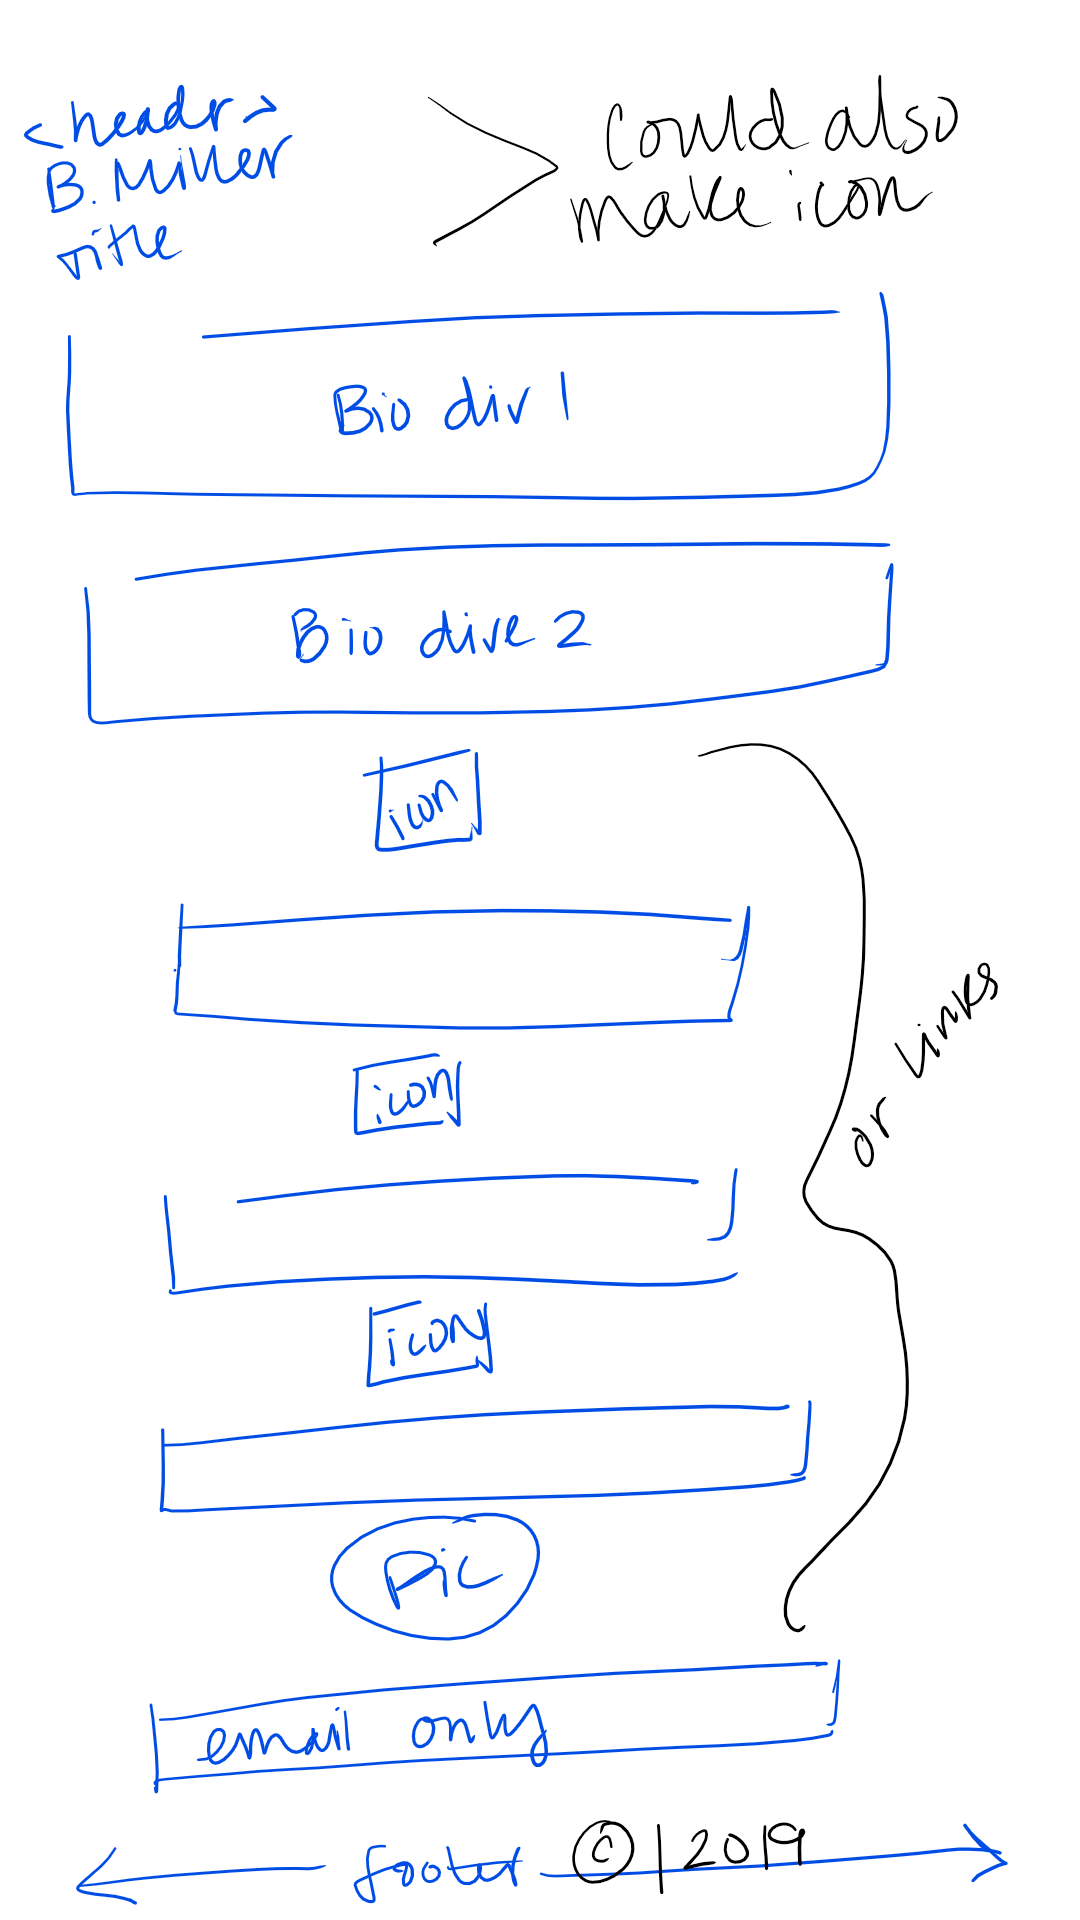 <headr>
B. Miller
Title
Could also
make icon
Bio div 1
Bio dive 2
icon
icon
icon
or links
Pic
email only
footer © | 2019